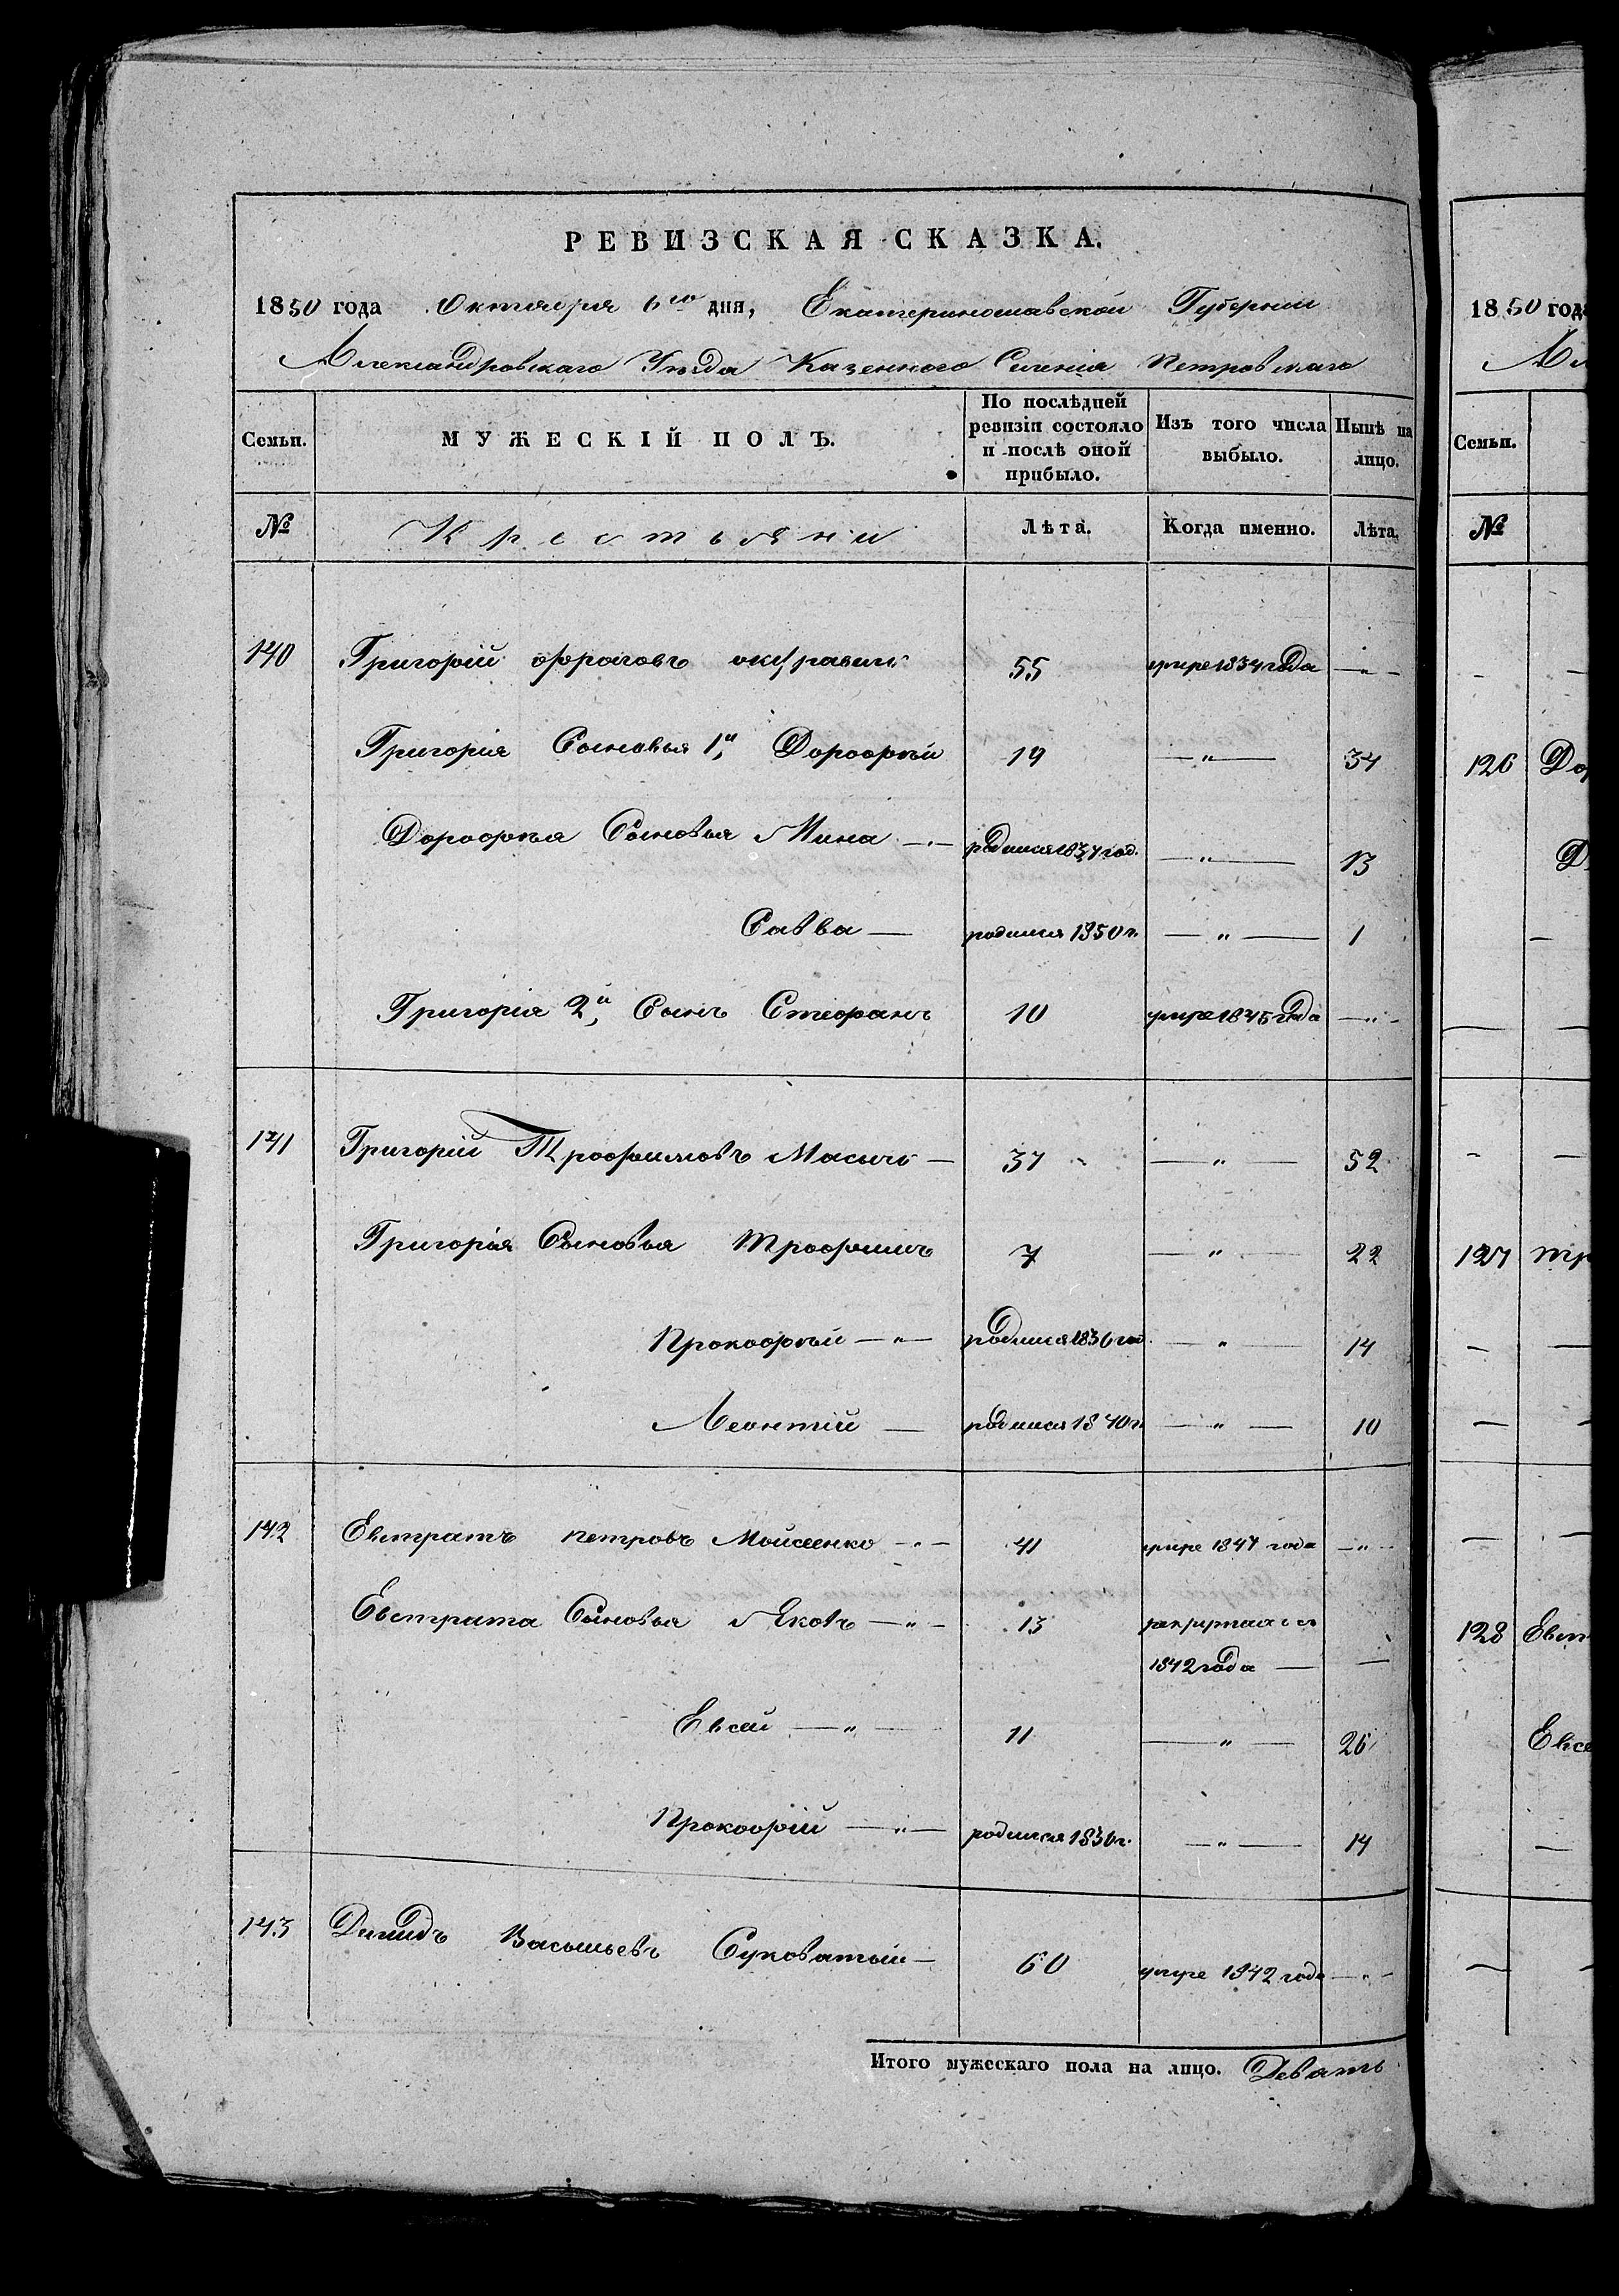 РЕВИЗСКАЯ СКАЗКА.
1850 года Октября 6го дня, Екатеринославской Губернии
Александровскаго Уѣзда Казеннаго Селенія Петровскаго
Семьи. МУЖЕСКІЙ ПОЛЪ. По послѣдней ревизіи состояло и послѣ оной прибыло. Изъ того числа выбыло. Нынѣ на лицо.
№ Крестьяни Лѣта. Когда именно. Лѣта.
140 Григорій 55 умре 1834 года —„—
Григорія Сыновья 1й, Дорофѣй 19 —„— 34
Дорофѣя Сыновья Мина —„— родился 1837 год. —„— 13
Савва — родился 1850 г. —„— 1
Григорія 2й, Сынъ Стефанъ 10 умре 1845 года —„—
141 Григорій Трофимовъ Масычь — 37 —„— 52
Григорія Сыновья Трофимъ 7 —„— 22
Прокофѣй —„— родился 1836 год —„— 14
Леонтій — родился 1840 г. —„— 10
142 Евтратъ Петровъ Мойсеенко —„— 41 умре 1847 года —„—
Евстрата Сыновья Яковъ —„— 13 рекрутахъ съ
1842 года — —
Евсей —„— 11 —„— 26
Прокофій —„— родился 1836 г. —„— 14
143 Демидъ Васильевъ Суковатый — 60 умре 1842 года —„—
Итого мужескаго пола на лицо. Девять
1850 года
Семьи.
№
126 До
127 Тр
128 Евт
Евсе